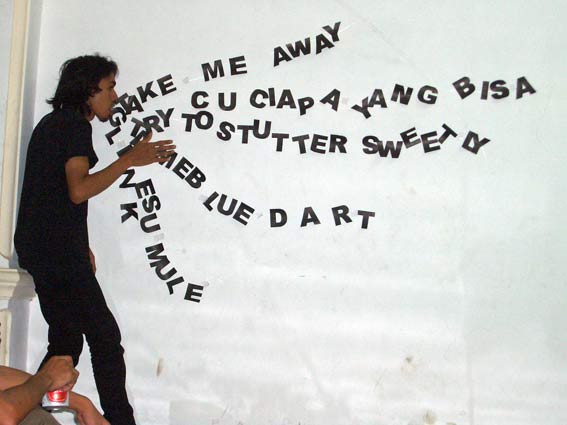 TAKE ME AWAY
CU CIAPA YANG BISA
TRY TO STUTTER SWEETLY
MEB LUE DART
ESU MULE